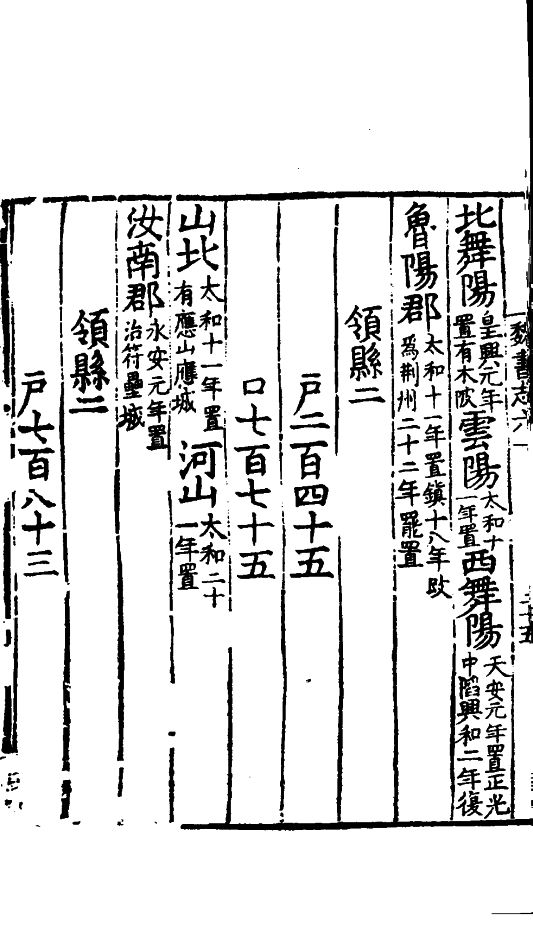 魏書志六
二十五
北舞陽皇興元年置有木陂雲陽太和十一年置西舞陽天安元年置正光中陷興和二年復
魯陽郡太和十一年置鎮十八年改爲荆州二十二年罷置
領縣二
戶二百四十五
口七百七十五
山北太和十一年置有應山應城河山太和二十一年置
汝南郡永安元年置治符壘城
領縣二
戶七百八十三